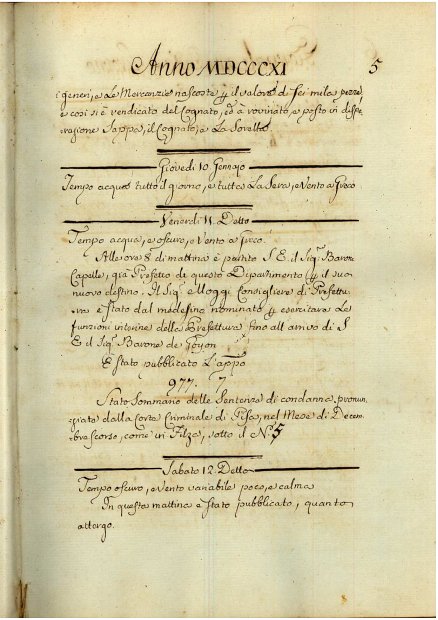 Anno MDCCCXI 5
i generi, e Le Mercanzie nascoste p il valore di sei mila pezze,
e così si è vendicato del Cognato, ed à rovinato, e posto in dispe,
razione Pappa, il Cognato, e La Sorella.
Giovedì 10 Gennajo
Tempo acqua tutto il giorno, e tutta La Sera, e Vento a Greco
Venerdì 11. Detto
Tempo acqua, e oscuro, e Vento a Greco.
Alle ore 8 di mattina è partito S. E. il Sig.r Barone
Capelle, già Prefetto di questo Dipartimento p il suo
nuovo destino. Il Sig.r Elloggi Consigliere di Prefettu,
ra è stato dal medesimo nominato p esercitare Le
funzioni interine della Prefettura fino all'arrivo di S.
E. il Sig.r Barone de Goyon
E Stato pubblicato L'app.o
977. 7
Stato Sommario delle Sentenze di condanna pronun,
ziate dalla Corte Criminale di Pisa, nel Mese di Decem,
bre scorso, come in Filza, sotto il N.° 5
Sabato 12. Detto
Tempo oscuro, e Vento variabile poco, e calma
In questa mattina è stato pubblicato, quanto
attergo.